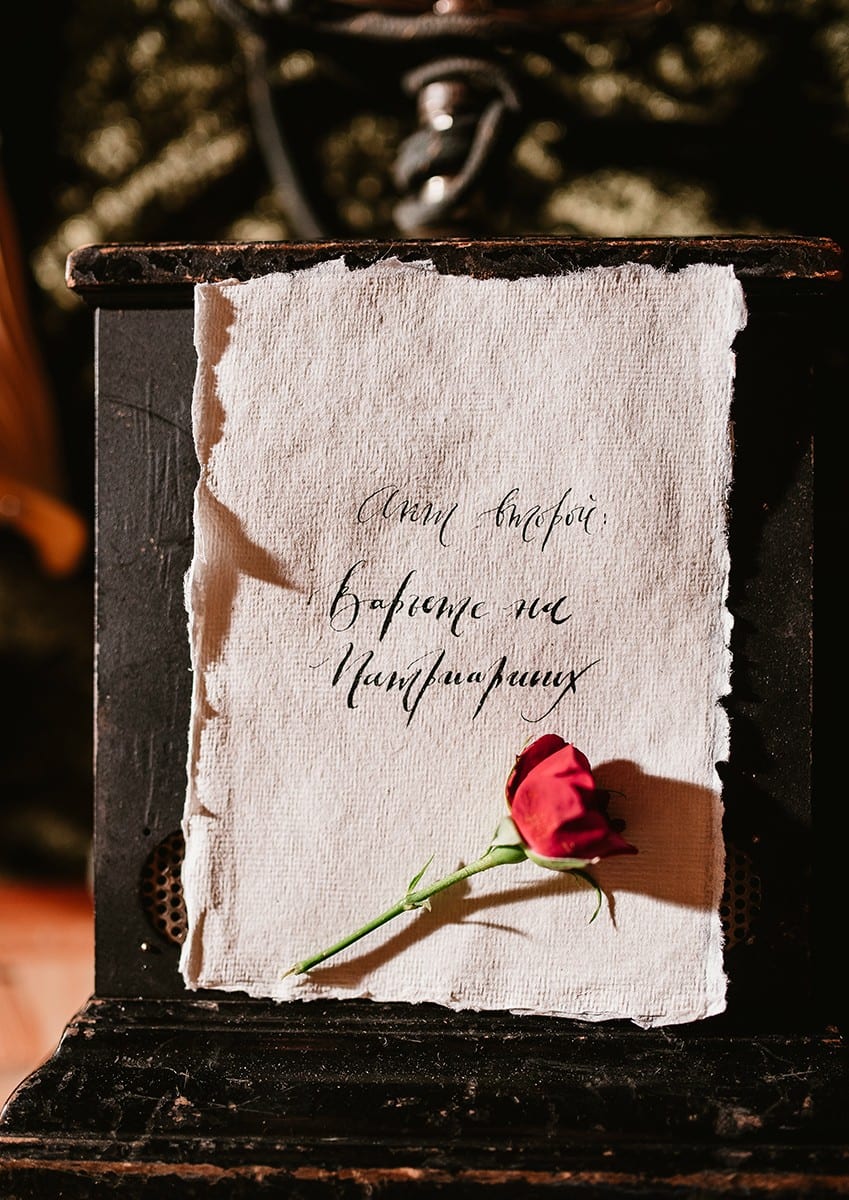 Акт второй:
Варьете на
Патриарших